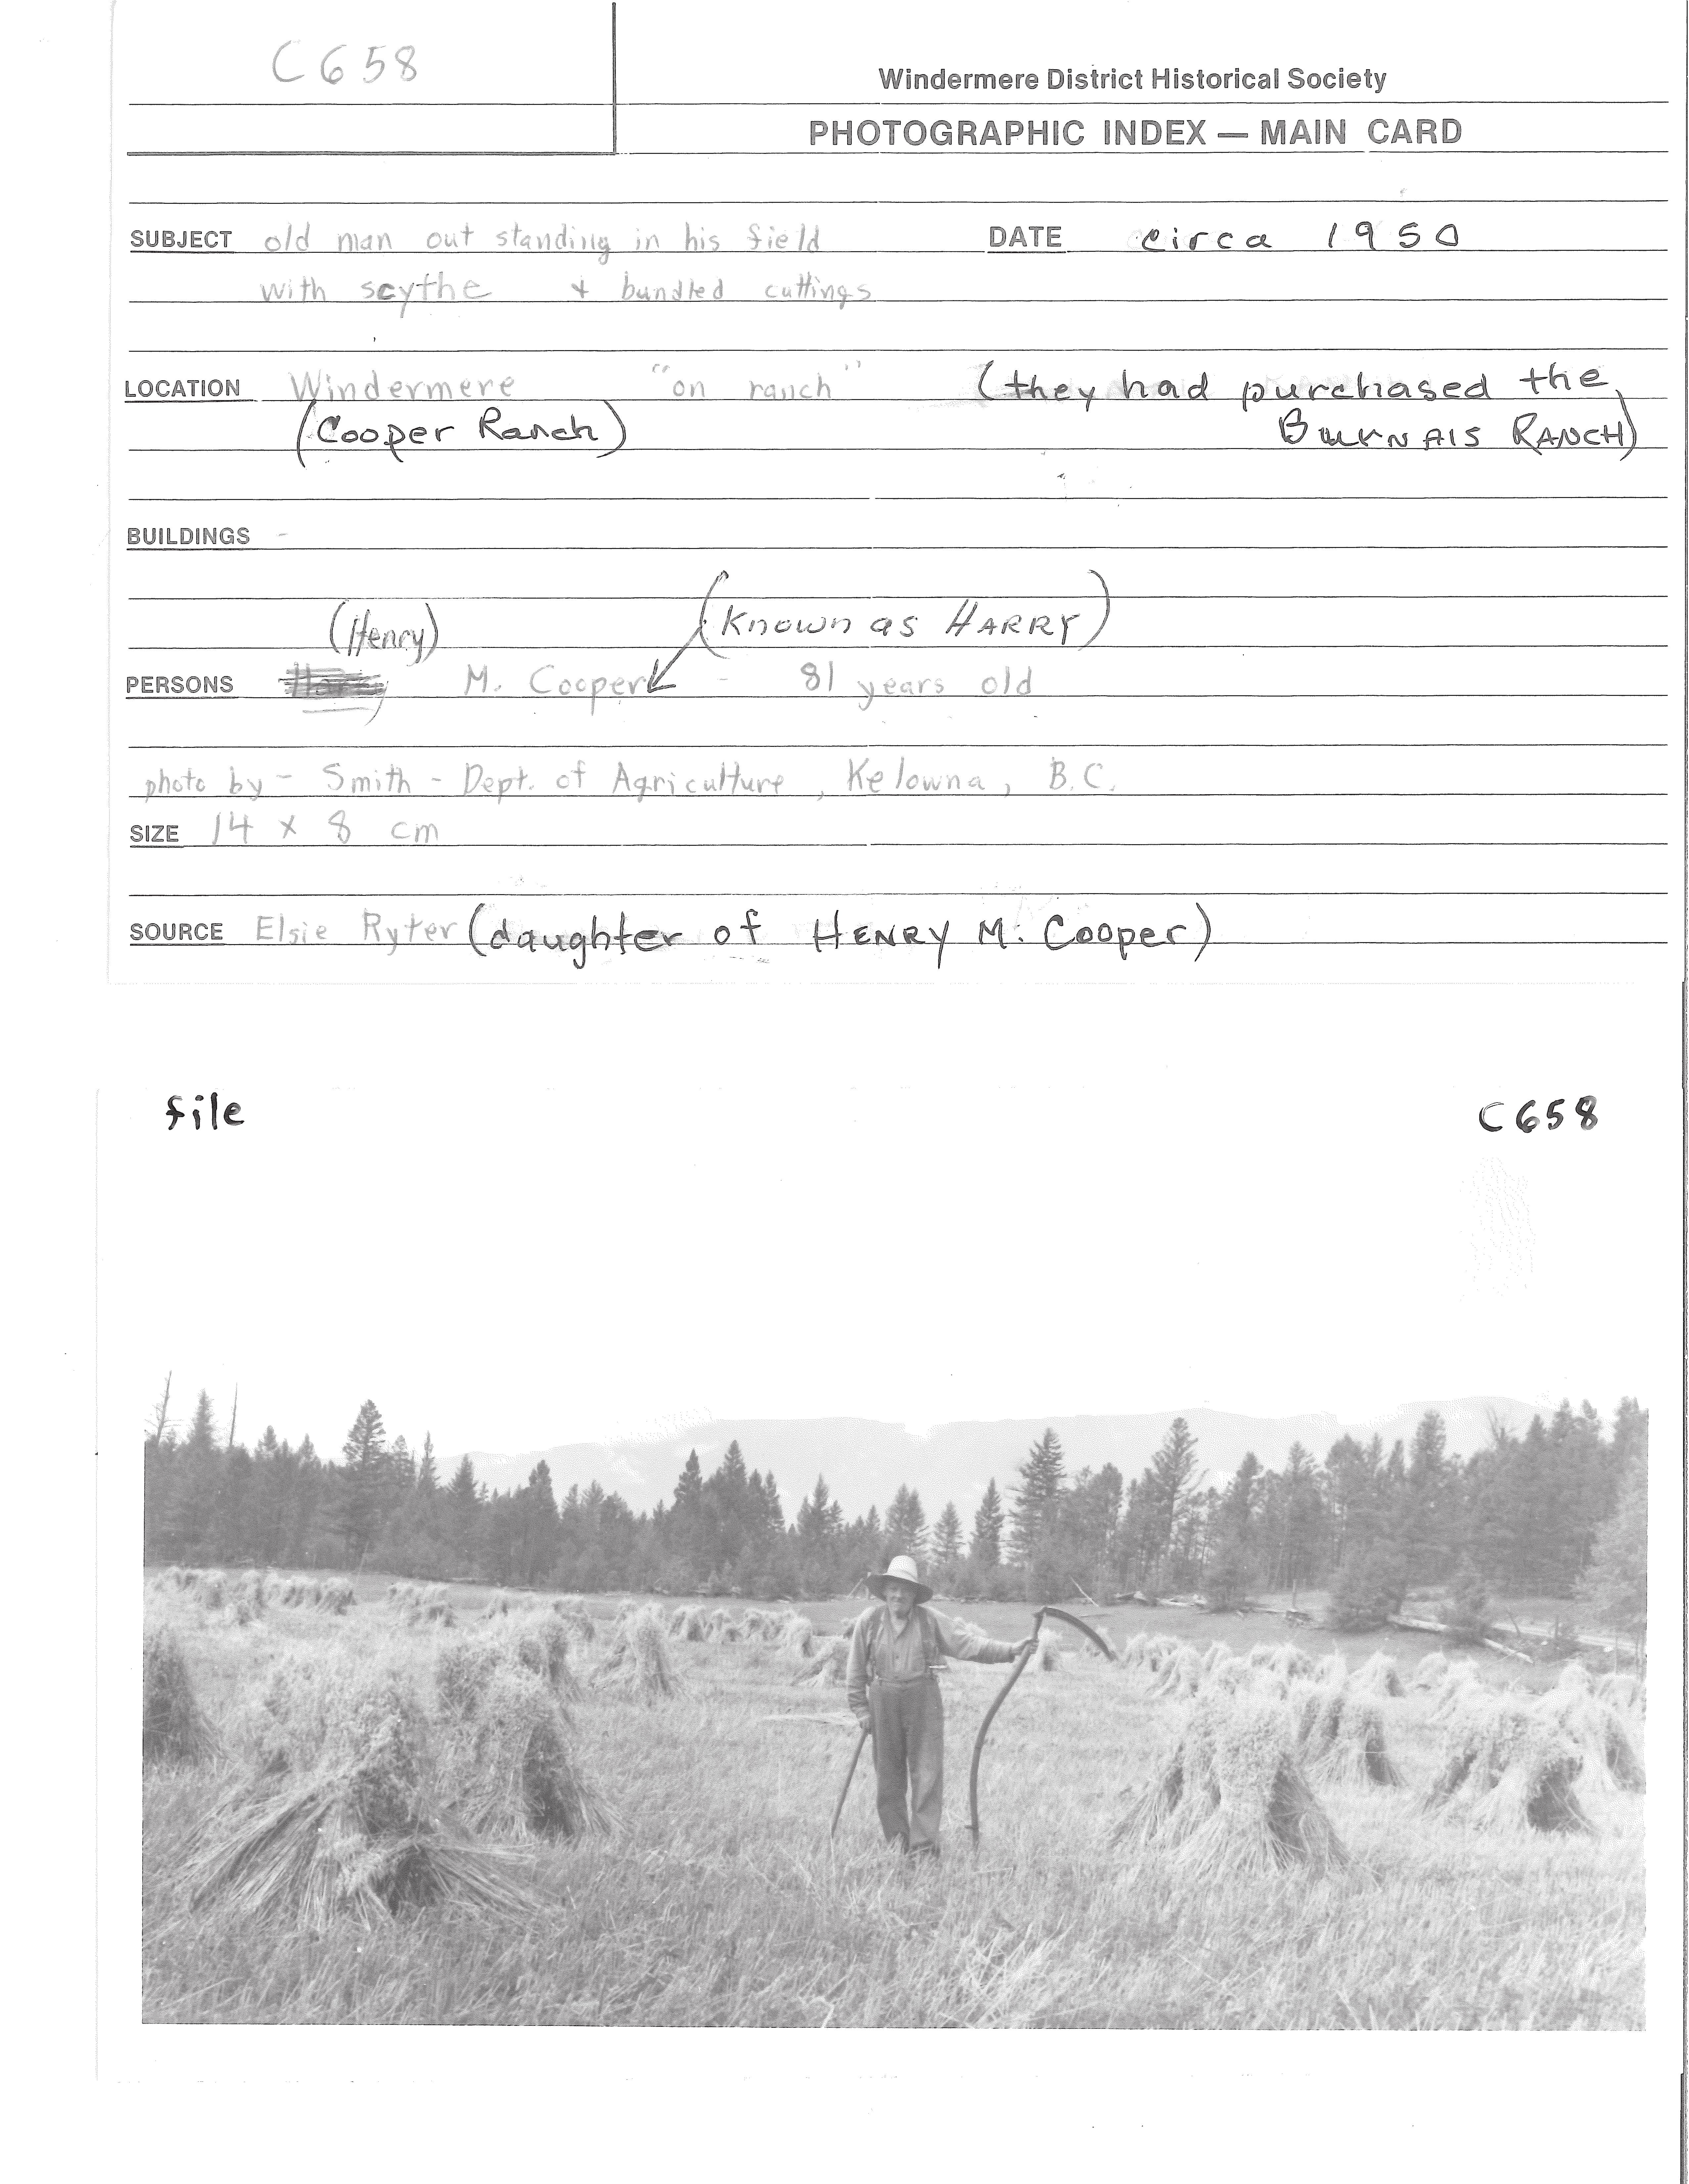 C658
Windermere District Historical Society
PHOTOGRAPHIC INDEX — MAIN CARD
SUBJECT old man out standing in his field DATE circa 1950
with scythe + bundled cuttings
LOCATION Windermere "on ranch" (they had purchased the
(Cooper Ranch) RANCH)
BUILDINGS -
(Henry) (Known as HARRY)
PERSONS M. Cooper - 81 years old
photo by - Smith - Dept. of Agriculture, Kelowna, B.C.
SIZE 14 x 8 cm
SOURCE Elsie Ryter (daughter of HENRY M. Cooper)
file C658